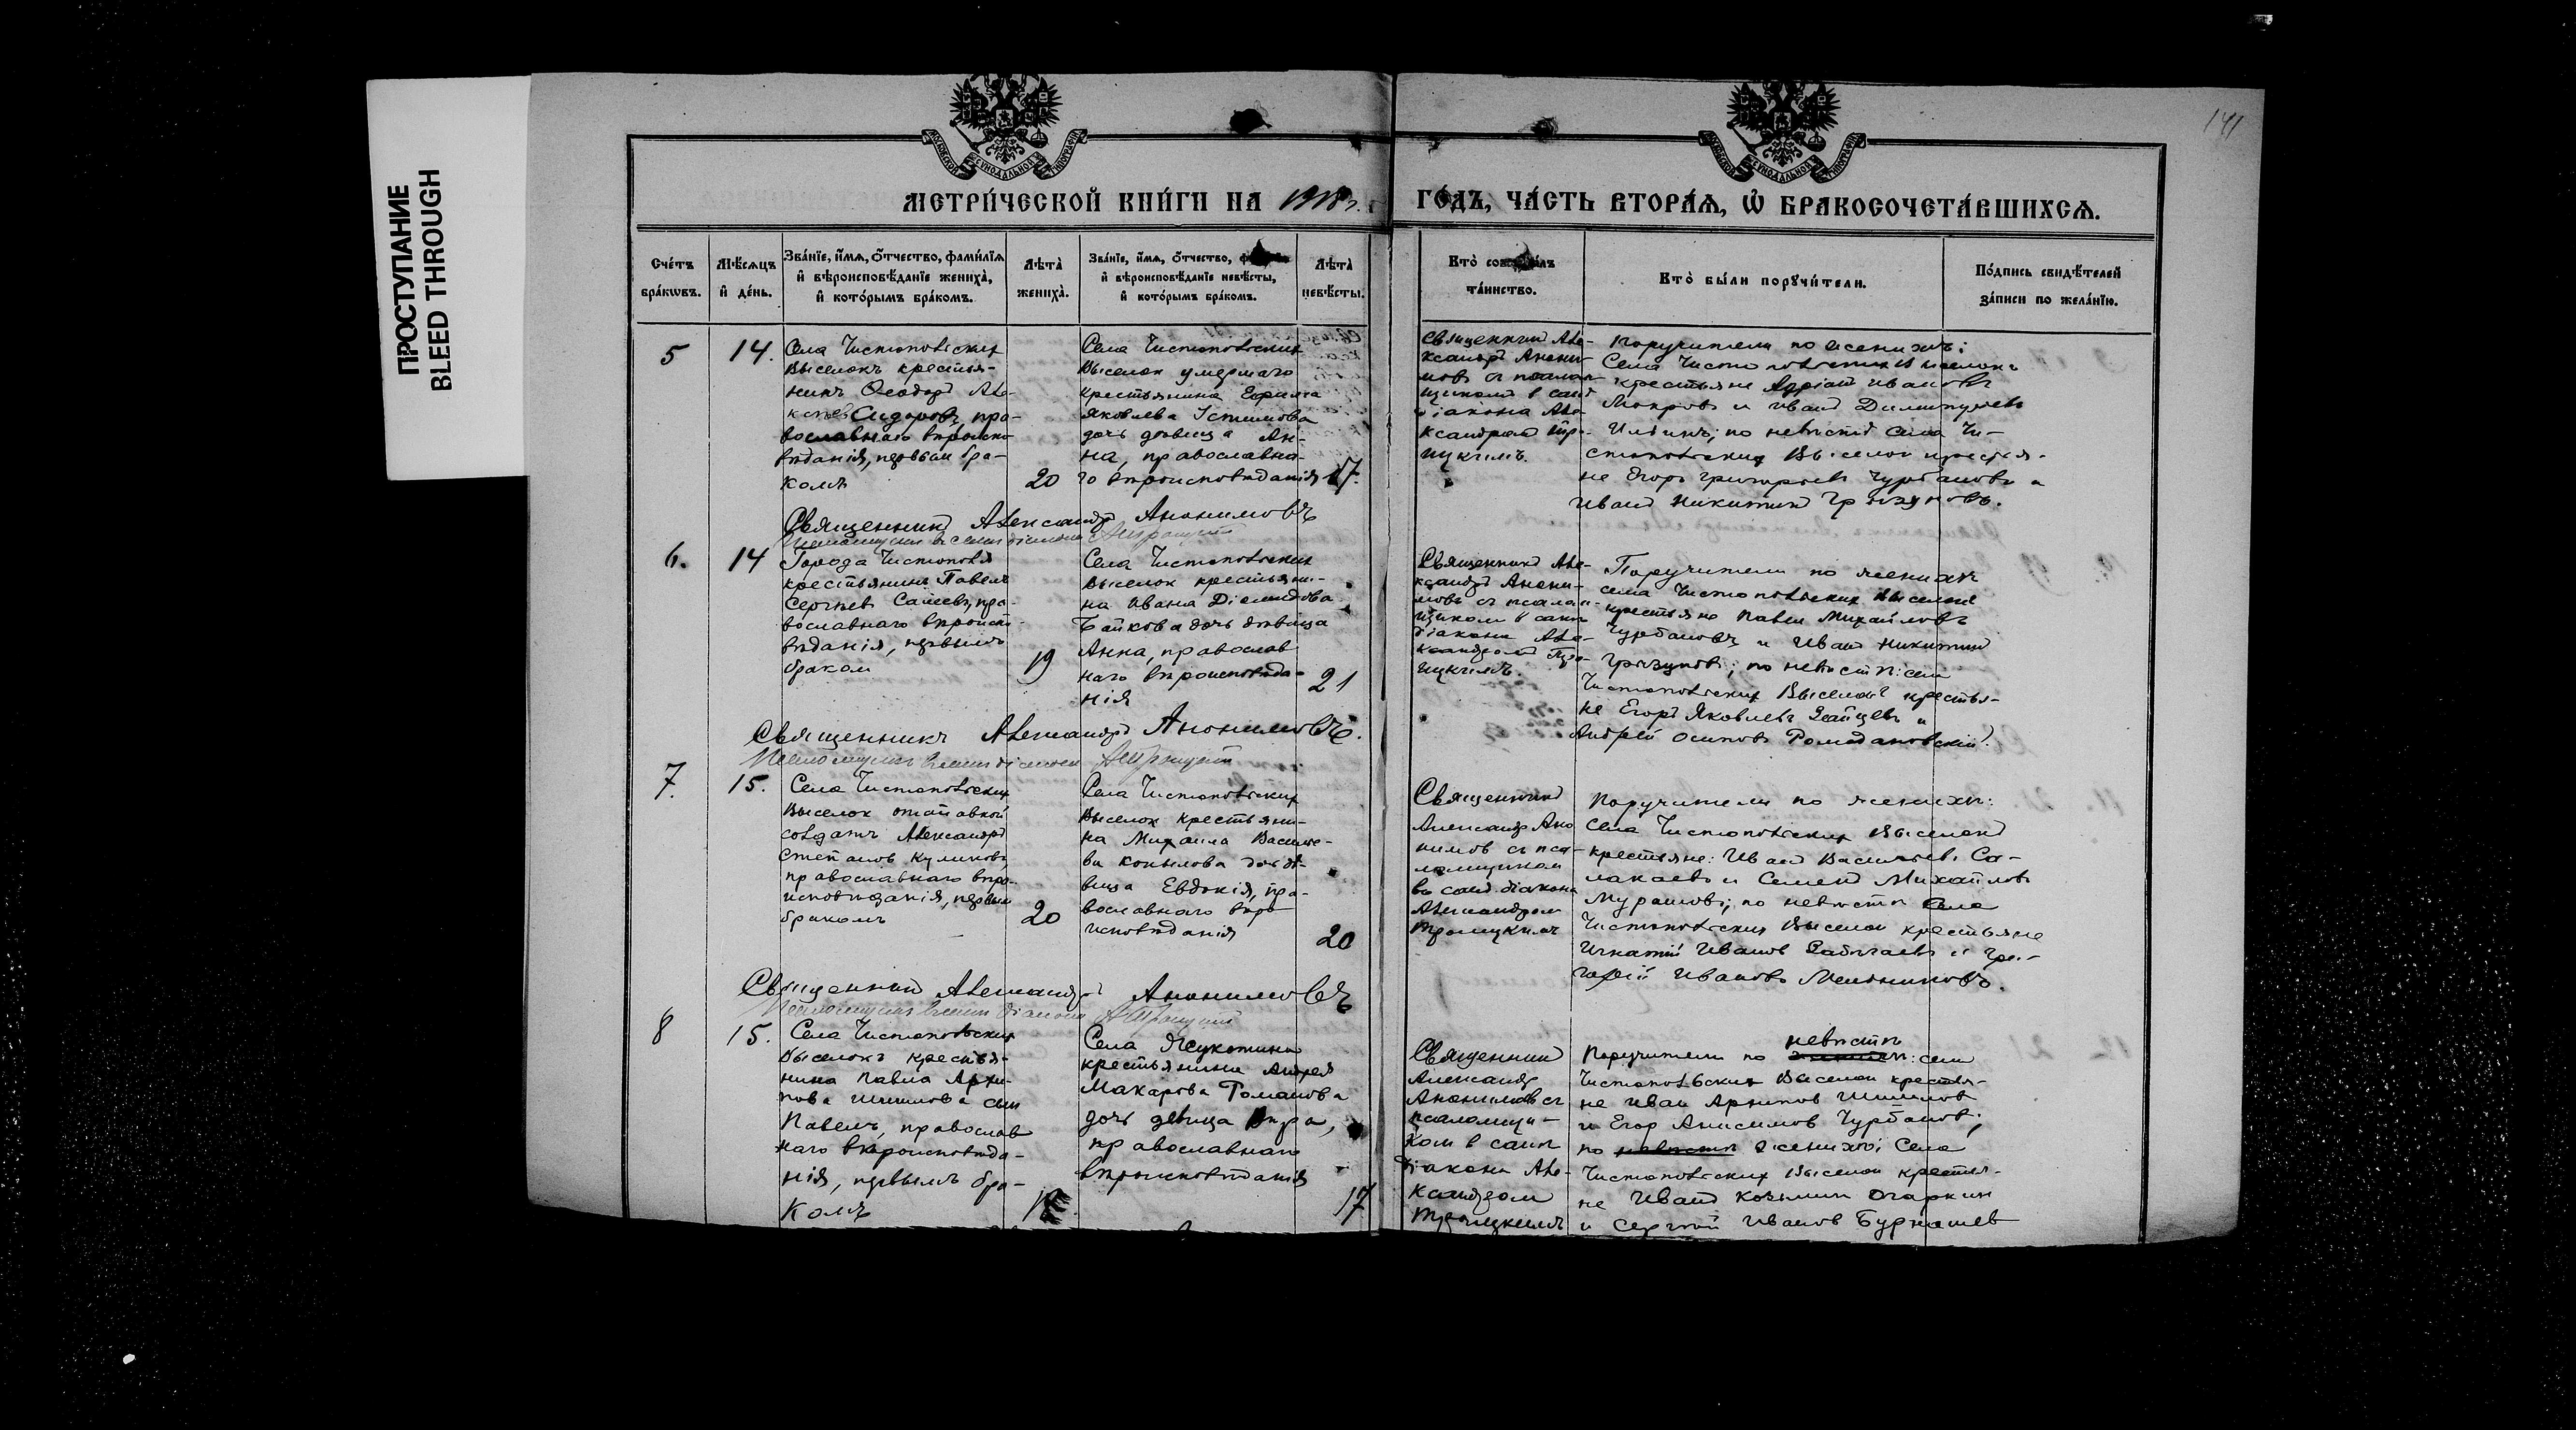 ПРОСТУПАНИЕ
BLEED THROUGH
141
МОСКОВСКОЙ СѴНОДАЛЬНОЙ ТИПОГРАФІИ
МОСКОВСКОЙ СѴНОДАЛЬНОЙ ТИПОГРАФІИ
МЕТРИ́ЧЕСКОЙ КНИ́ГИ НА 1918 г. ГО́ДЪ, ЧА́СТЬ ВТОРА́Я, Ѡ БРАКОСОЧЕТА́ВШИХСЯ.
Сче́тъ бра́кѡвъ.
Мѣ́сяцъ и де́нь.
Зва́нїе, и́мя, о́тчество, фами́лїя и вѣроисповѣ́данїе жениха̀, и кото́рымъ бра́комъ.
Лѣта̀ жениха̀.
Зва́нїе, и́мя, о́тчество, и вѣроисповѣ́данїе невѣ́сты, и кото́рымъ бра́комъ.
Лѣта̀ невѣ́сты.
Кто̀ таинство.
Кто̀ бы́ли поручи́тели.
По́дпись свидѣ́телей за́писи по жела́нїю.
5
14.
Села Чистопольских
Выселокъ крестья-
нинъ Ѳеодоръ Але-
Сидоровъ, пра-
вославнаго вѣроиспо-
вѣданія, первым бра-
комъ
20
Села Чистопольских
Выселок умершаго
крестьянина
Яковлева Устимова
дочь дѣвица Ан-
на, православна-
го вѣроисповѣданія
17.
Священник Але-
ксандръ Анони-
мовъ съ псалом-
щиком в санѣ
діакона Але-
ксандром Тро-
ицкимъ.
Поручители по женихѣ:
Села Чистопольских Выселокъ
крестьяне Адріан Иванов
Мокров и Иван Димитріев
Ильинъ; по невѣстѣ Села Чи-
стопольских Выселок крестья-
не Егоръ Григорьевъ Чурбановъ и
Иван Никитин Грызуновъ.
Священник Александръ Анонимовъ
Псаломщик в санѣ діакона А Троицкій
6.
14
Города Чистополя
крестьянинъ Павелъ
Сергѣев Салеевъ, пра-
вославнаго вѣроиспо-
вѣданія, первымъ
браком
19
Села Чистопольских
Выселок крестьяни-
на Ивана Діомидова
Байкова дочь дѣвица
Анна, православ
наго вѣроисповѣда-
нія
21
Священник Але-
ксандръ Анони-
мовъ съ псалом-
щиком в санѣ
діакона Але-
ксандром Тро-
ицкимъ.
Поручители по женихѣ
села Чистопольских Выселок
крестьяне Павел Михайловъ
Чурбановъ и Иван Никитин
Грызунов; по невѣстѣ: села
Чистопольских Выселокъ крестья-
не Егоръ Яковлевъ Зайцевъ и
Андрей Осипов Ромодановскій.
Священникъ Александръ Анонимовъ.
Псаломщикъ в санѣ діакона А Троицкій
7.
15.
Села Чистопольских
Выселок отставной
солдатъ Александръ
Степанов Куликовъ
православнаго вѣро-
исповѣданія, первым
бракомъ
20
Села Чистопольских
Выселок крестьяни-
на Михаила Василье-
ва Копылова дочь дѣ-
вица Евдокія, пра-
вославнаго вѣро-
исповѣданія
20
Священник
Александр Ано
нимов съ пса-
ломщиком
въ санѣ діакона
Александром
Троицкимъ
Поручители по женихѣ:
Села Чистопольских Выселок
крестьяне: Иван Васильев Са-
лакаевъ и Семен Михайлов
Мурашов; по невѣстѣ Села
Чистопольских Выселок крестьяне
Игнатій Иванов и Гри-
горій Ивановъ Мельниковъ.
Священник Александръ Анонимовъ
Псаломщикъ в санѣ діакона А Троицкій
8
15.
Села Чистопольских
Выселокъ крестья-
нина Павла Архи-
пова Шишлова сын
Павелъ, православ
наго вѣроисповѣда-
нія, первымъ бра-
комъ
Села Жукотина
крестьянина Андрея
Макарова Романова
дочь девица Вѣра,
православнаго
вѣроисповѣданія
17
Священник
Александр
Анонимов съ
псаломщи-
ком в санѣ
діакона Але-
ксандром
Троицкимъ
Поручители по невѣстѣ: села
Чистопольских Выселок крестья-
не Иван Архипов Шишлов
и Егор Анисимов Чурбанов;
по женихѣ: Села
Чистопольских Выселок крестья-
не Иван Козьмин Огаркин
и Сергѣй Иванов Бурнашев